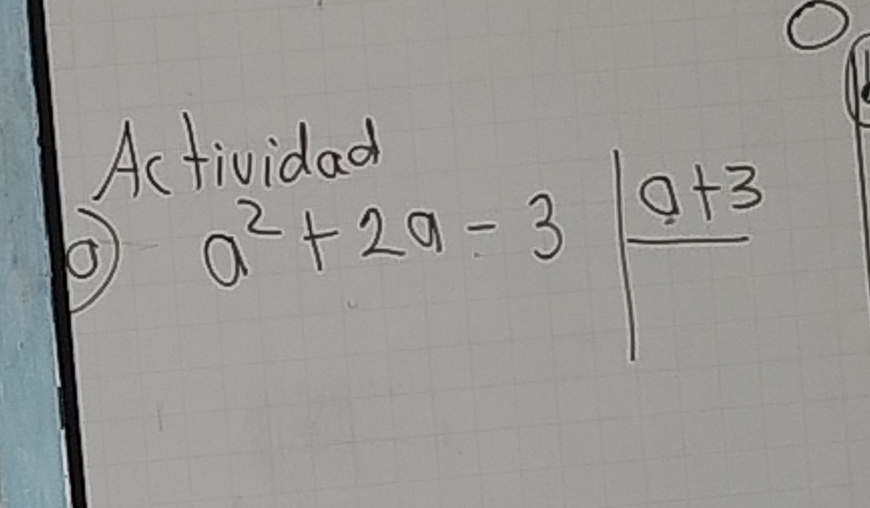 Actividad
a) a² + 2a - 3 | a+3